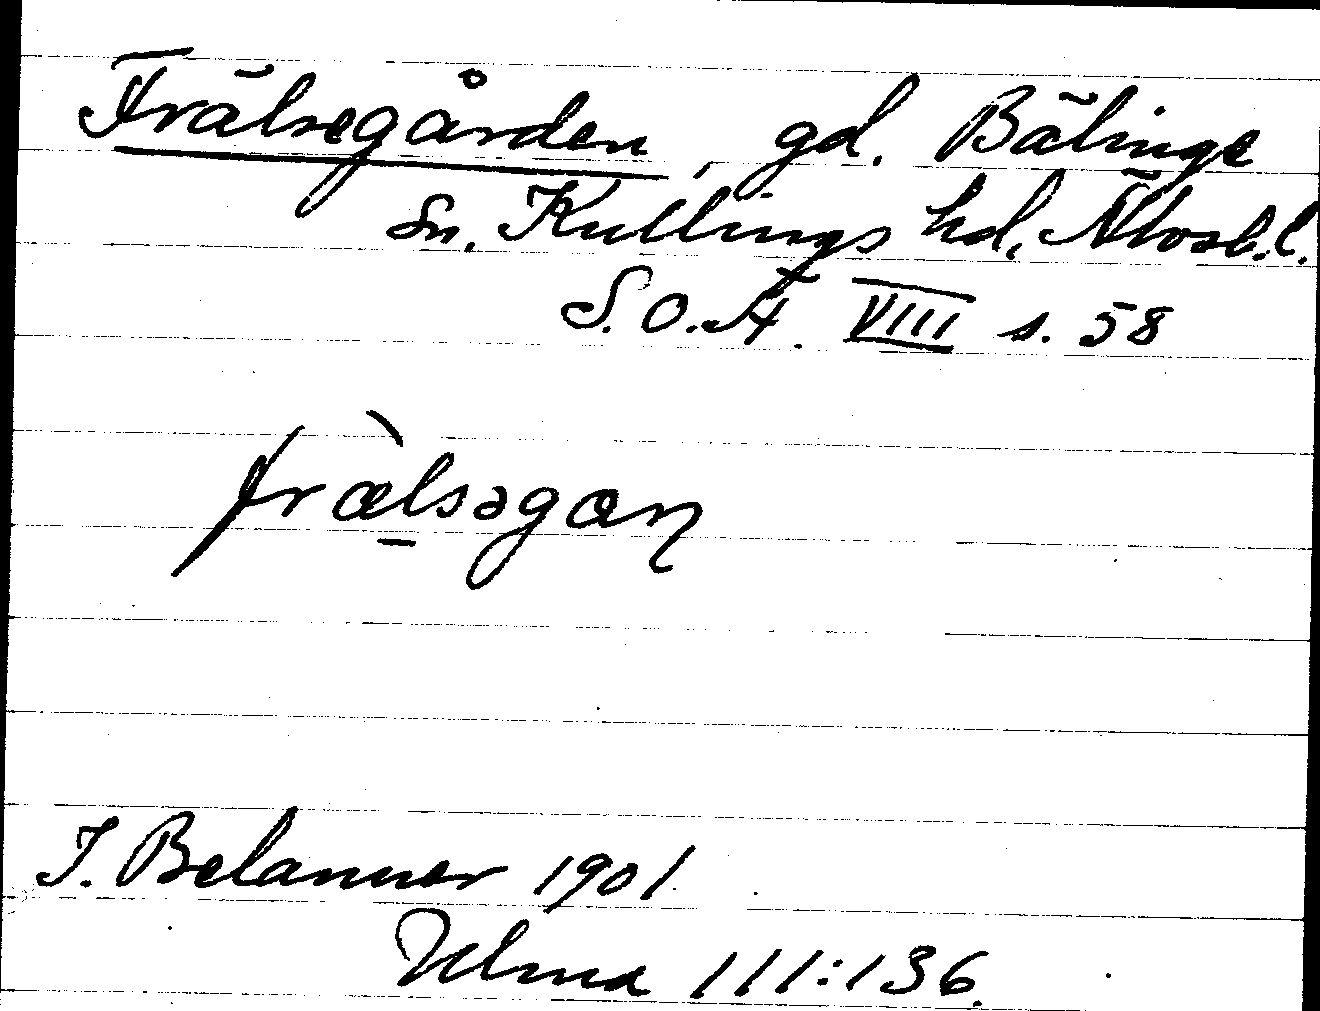 Frälsegården, gd. Bälinge
Sn. Kullings hd. Älvsb. l.
S.O.Ä. VIII s. 58
fræ̱̀lsəgan
J. Belanner 1901
Ulma 111:136.